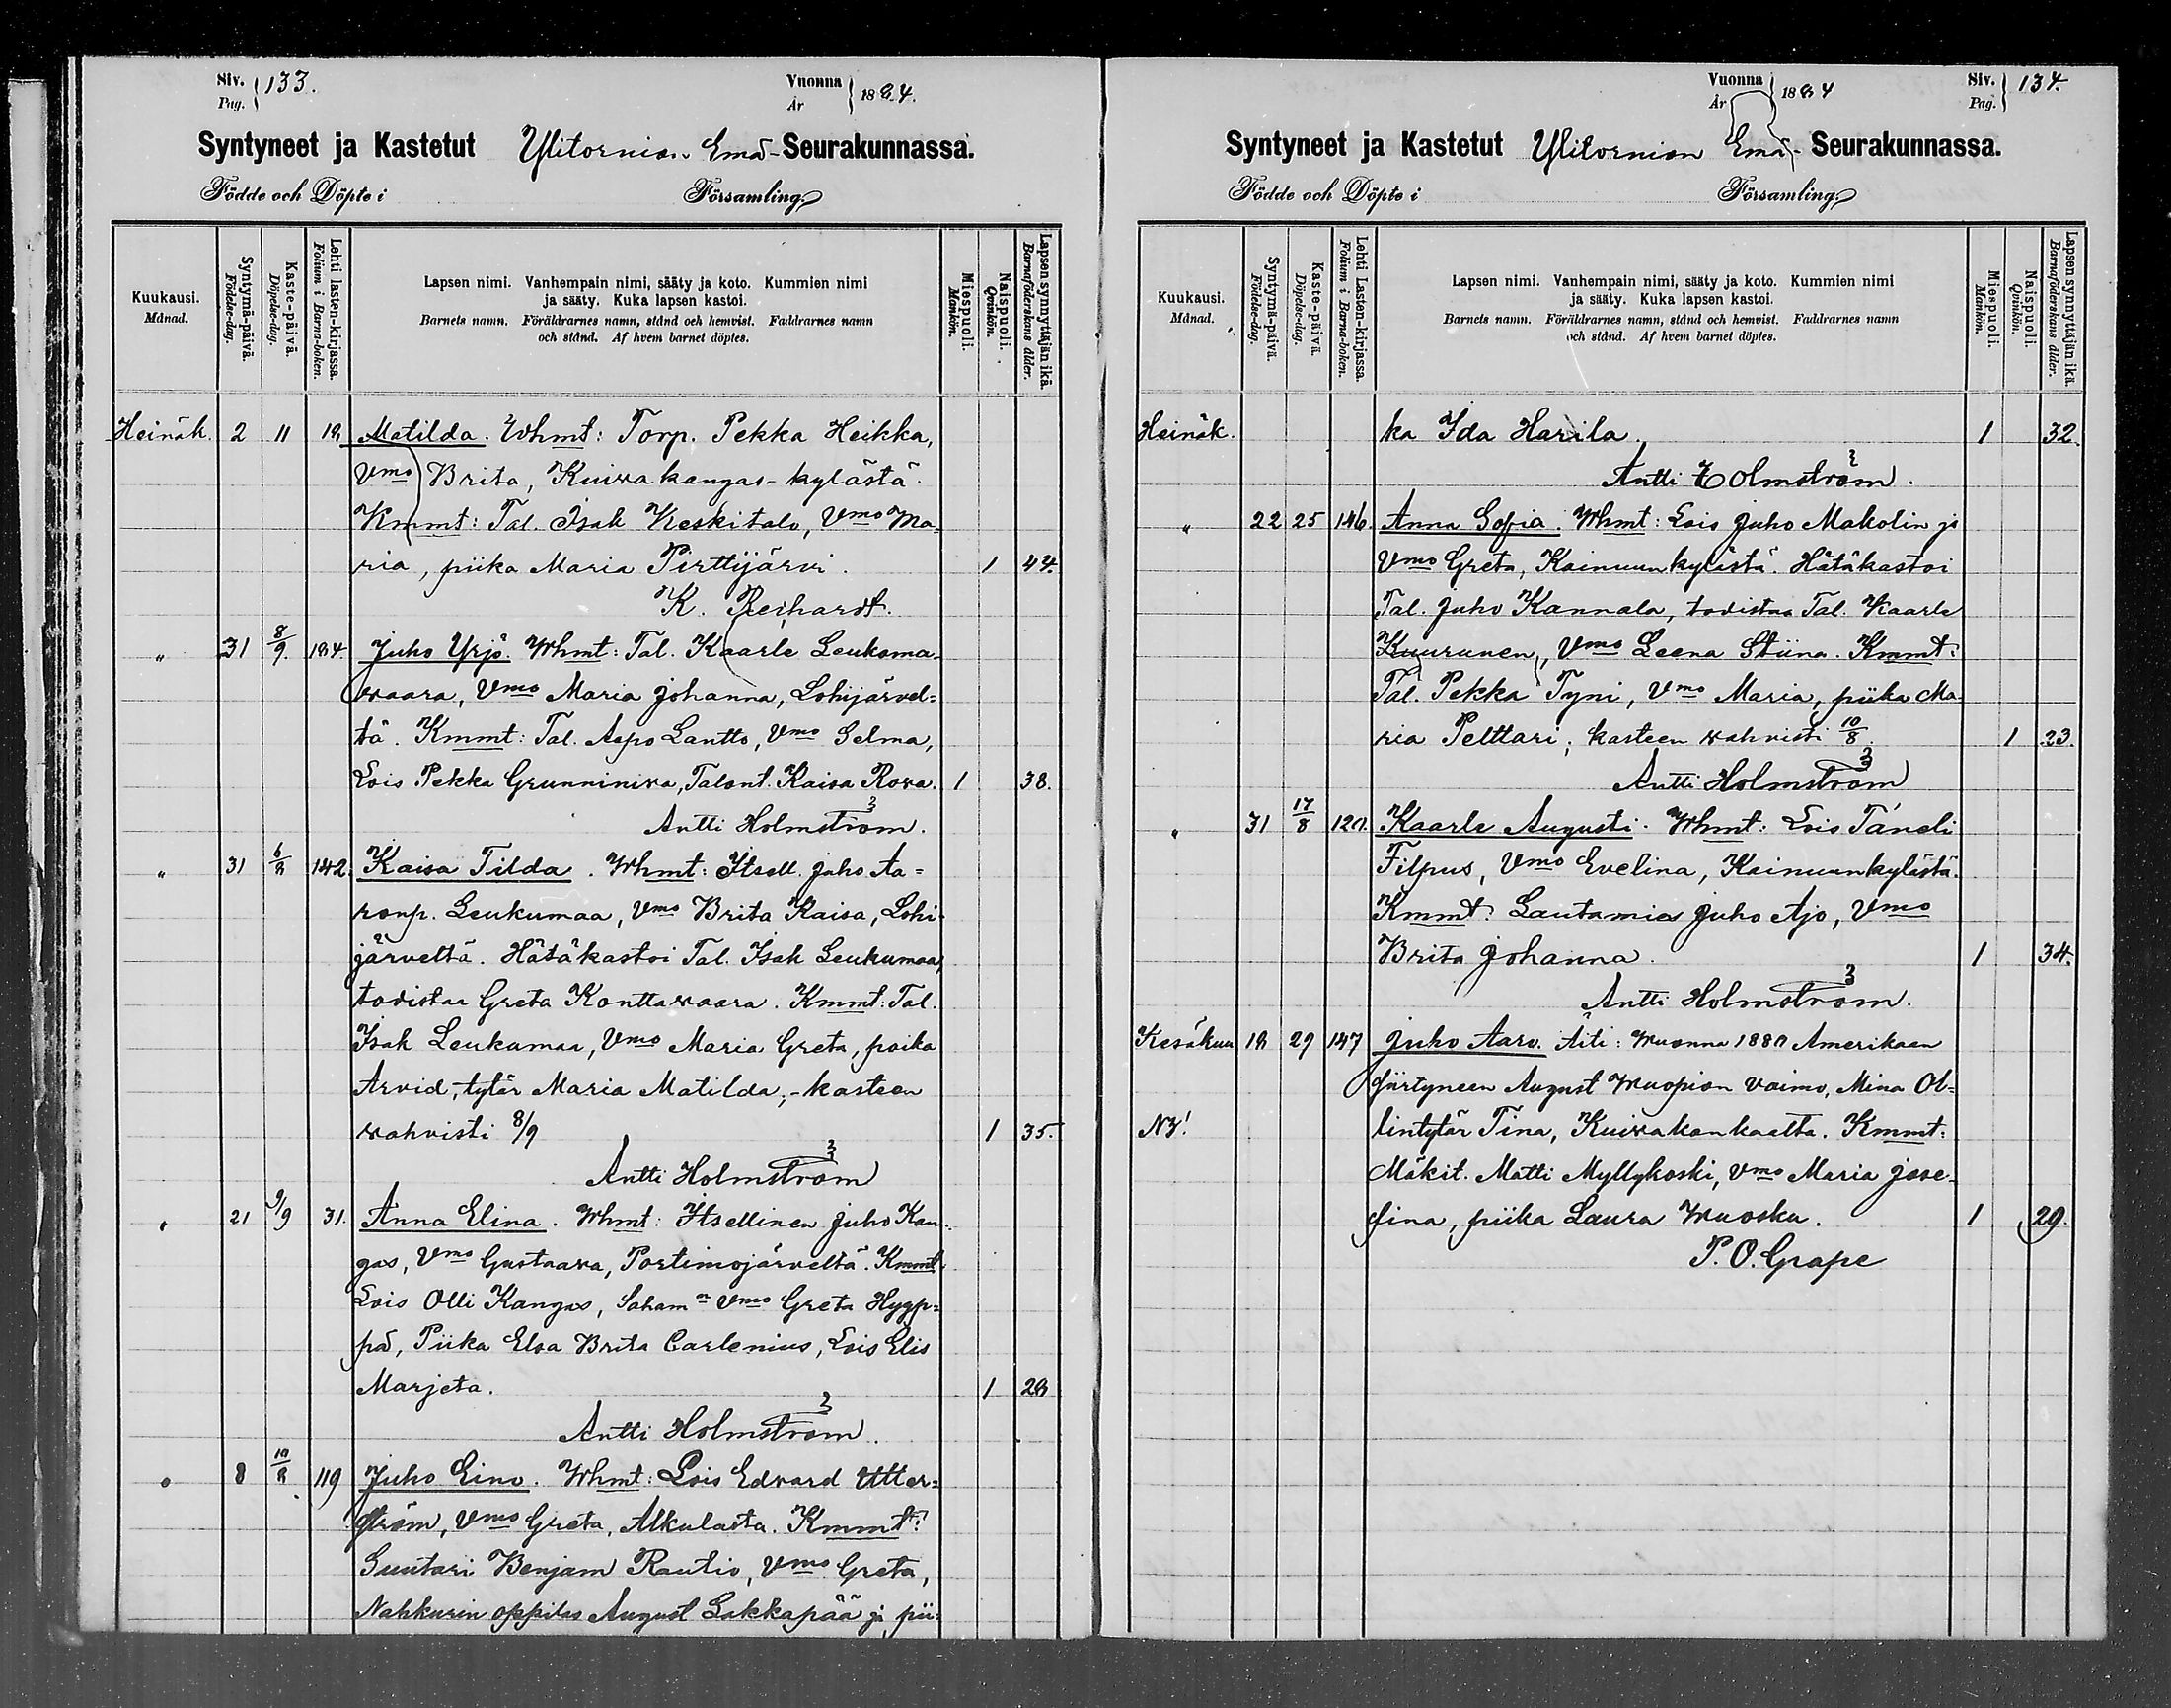 Siv. 133.
Pag.
Vuonna 1884.
År
Syntyneet ja Kastetut Ylitornion Emä-Seurakunnassa.
Födde och Döpte i Församling.
Kuukausi. Månad.
Syntymä-päivä. Födelse-dag.
Kaste-päivä. Döpelse-dag.
Lehti lasten-kirjassa. Folium i Barna-boken.
Lapsen nimi. Vanhempain nimi, sääty ja koto. Kummien nimi
ja sääty. Kuka lapsen kastoi.
Barnets namn. Föräldrarnes namn, stånd och hemvist. Faddrarnes namn
och stånd. Af hvem barnet döptes.
Miespuoli. Mankön.
Naispuoli. Qvinkön.
Lapsen synnyttäjän ikä. Barnaföderskans ålder.
Heinäk. 2 11 18 Matilda. Whmt: Torp. Pekka Heikka,
Vmo Brita, Kuiwakangas-kylästä.
Kmmt: Tal. Isak Keskitalo, Vmo Ma-
ria, piika Maria Pirttijärvi. 1 44.
K. Reihardt.
" 31 8/9 184. Juho Yrjö. Whmt: Tal. Kaarle Leukuma-
waara, Vmo Maria Johanna, Lohijärvel-
tä. Kmmt: Tal. Aapo Lantto, Vmo Selma,
Lois Pekka Grunniniwa, Talont. Kaisa Rowa. 1 38.
Antti Holmström.
" 31 6/8 142. Kaisa Tilda. Whmt: Itsell. Juho Aa=
ronp. Leukumaa, Vmo Brita Kaisa, Lohi-
järveltä. Hätäkastoi Tal. Isak Leukumaa,
todistaa Greta Konttawaara. Kmmt: Tal.
Isak Leukumaa, Vmo Maria Greta, poika
Arvid, tytär Maria Matilda; - kasteen
wahvisti 8/9 1 35.
Antti Holmström
" 21 9/9 31. Anna Elina. Whmt: Itsellinen Juho Kan-
gas, Vmo Gustaava, Portimojärveltä. Kmmt:
Lois Olli Kangas, Vmo Greta Hyyp=
pä, Piika Elsa Brita Carlenius, Lois Elis
Marjeta. 1 28
Antti Holmström.
" 8 10/8 119 Juho Eino. Whmt: Lois Edvard Utter=
ström, Vmo Greta, Alkulasta. Kmmt:
Suutari Benjam Rautio, Vmo Greta,
Nahkurin oppilas August Lakkapää ja pii-
Vuonna 1884
År
Siv. 134.
Pag.
Syntyneet ja Kastetut Ylitornion Emä- Seurakunnassa.
Födde och Döpte i Församling.
Kuukausi. Månad.
Syntymä-päivä. Födelse-dag.
Kaste-päivä. Döpelse-dag.
Lehti Lasten-kirjassa. Folium i Barna-boken.
Lapsen nimi. Vanhempain nimi, sääty ja koto. Kummien nimi
ja sääty. Kuka lapsen kastoi.
Barnets namn. Föräldrarnes namn, stånd och hemvist. Faddrarnes namn
och stånd. Af hvem barnet döptes.
Miespuoli. Mankön.
Naispuoli. Qvinkön.
Lapsen synnyttäjän ikä. Barnaföderskans ålder.
Heinäk. ka Ida Harila. 1 32.
Antti Holmström.
" 22 25 146 Anna Sofia. Whmt: Lois Juho Makolin ja
Vmo Greta, Kainuunkylästä. Hätäkastoi
Tal. Juho Kannala, todistaa Tal. Kaarle
Kuurunen, Vmo Leena Stiina. Kmmt:
Tal. Pekka Tyni, Vmo Maria, piika Ma-
ria Pelttari; kasteen wahvisti 10/8 1 23.
Antti Holmström
" 31 17/8 120. Kaarle Augusti. Whmt: Lois Taneli
Filpus, Vmo Evelina, Kainuunkylästä.
Kmmt: Lautamies Juho Ajo, Vmo
Brita Johanna. 1 34.
Antti Holmström.
Kesäkuu 18 29 147 Juho Aaro. Äiti: Wuonna 1880 Amerikaan
siirtyneen August Wuopion vaimo, Mina Ol-
NB! lintytär Tina, Kuiwakankaalta. Kmmt:
Mäkit. Matti Myllykoski, Vmo Maria Jose-
fina, piika Laura Wuosku. 1 29.
P. O. Grape